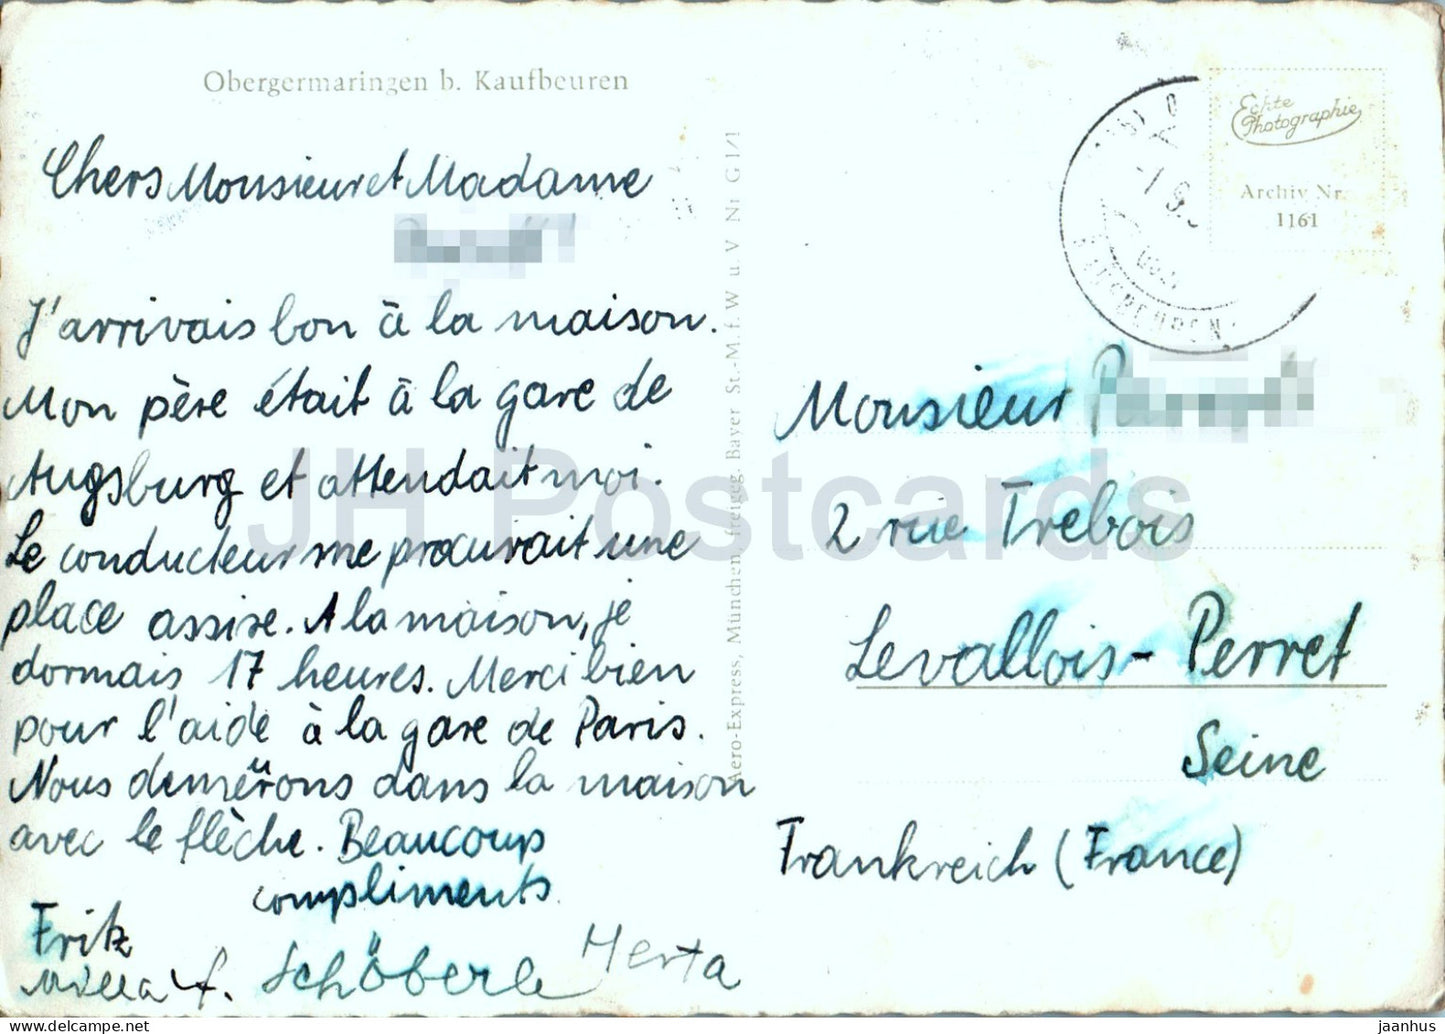 Obergermaringen b. Kaufbeuren
Chers Monsieur et Madame
J'arrivais bon à la maison.
Mon père était à la gare de
Augsburg et attendait moi.
Le conducteur me procurait une
place assise. A la maison, je
dormais 17 heures. Merci bien
pour l'aide à la gare de Paris.
Nous demeurons dans la maison
avec le flèche. Beaucoup
compliments
Fritz
f. Schöberle Herta
Aero-Express, München, freigeg. Bayer St.-M. f. W u. V Nr G 1/1
Echte
Photographie
Archiv Nr.
1161
Monsieur
2 rue Trebois
Levallois-Perret
Seine
Frankreich (France)
JH Postcards
www.delcampe.net
jaanhus